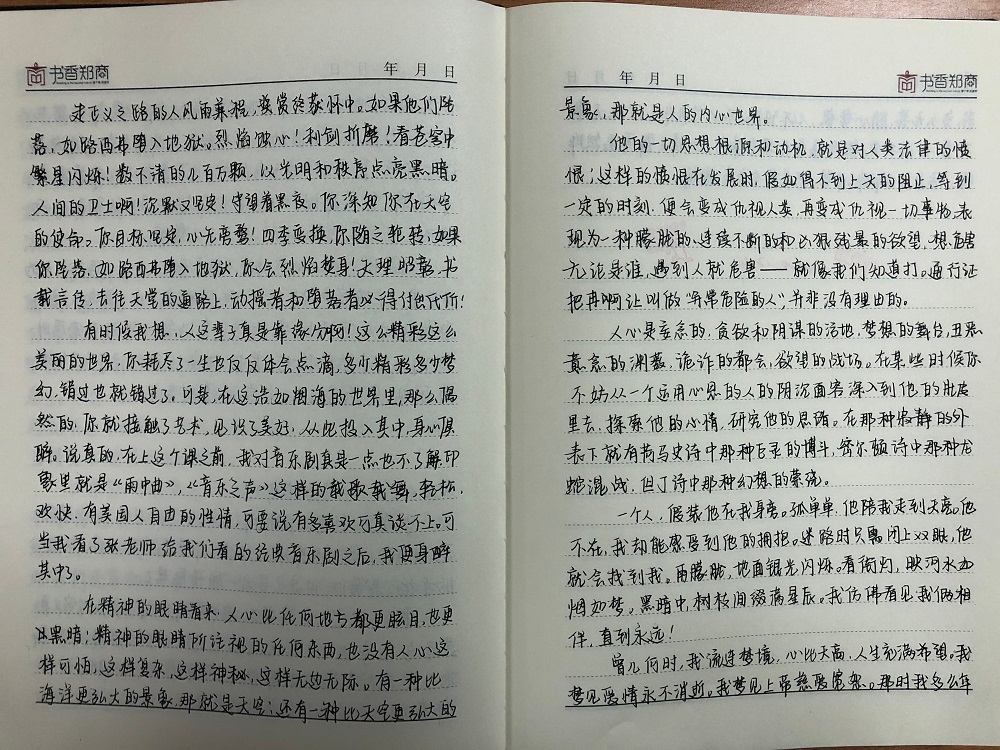 书香郑商
年 月 日
走正义之路的人风雨兼程,奖赏终获怀中。如果他们陷
落,如路西弗堕入地狱。烈焰蚀心!利剑折磨!看苍穹中
繁星闪烁!数不清的几百万颗,以光明和秩序点亮黑暗。
人间的卫士啊!沉默又坚定!守望着黑夜。你深知你在天空
的使命。你目标坚定,心无旁骛!四季变换,你随之轮转,如果
你坠落,如路西弗堕入地狱,你会烈焰焚身!天理昭彰,书
载言传,去往天堂的通路上,动摇者和堕落者必得付出代价!
有时候我想,人这辈子真是靠缘分啊!这么精彩这么
美丽的世界,你耗尽了一生也仅仅体会点滴,多少精彩多少梦
幻,错过也就错过了。可是,在这浩如烟海的世界里,那么偶
然的,你就接触了艺术,见识了美好,从此投入其中,身心俱
醉。说真的,在上这个课之前,我对音乐剧真是一点也不了解,印
象里就是“雨中曲”,“音乐之声”这样的载歌载舞,轻松,
欢快,有美国人自由的性情,可要说有多喜欢可真谈不上。可
当我看了张老师给我们看的经典音乐剧之后,我便身醉
其中了。
在精神的眼睛看来,人心比任何地方都更眩目,也更
黑暗;精神的眼睛所注视的任何东西,也没有人心这
样可怕,这样复杂,这样神秘,这样无边无际。有一种比
海洋更弘大的景象,那就是天空;还有一种比天空更弘大的
年 月 日
书香郑商
景象,那就是人的内心世界。
他的一切思想根源和动机,就是对人类法律的愤
恨;这样的愤恨在发展时,假如得不到上天的阻止,等到
一定的时刻,便会变成仇视人类,再变成仇视一切事物,表
现为一种朦胧的、连续不断的和凶狠残暴的欲望,想危害
无论是谁,遇到人就危害——就像我们知道打。通行证
把冉阿让叫做“异常危险的人”并非没有理由的。
人心是妄念的、贪欲和阴谋的活地,梦想的舞台,丑恶
意念的渊薮,诡诈的都会,欲望的战场。在某些时候你
不妨从一个运用心思的人的阴沉面容深入到他的肚皮
里去,探索他的心情,研究他的思绪。在那种寂静的外
表下就有荷马史诗中那种巨灵的博斗,密尔顿诗中那种龙
蛇混战,但丁诗中那种幻想的萦绕。
一个人,假装他在我身旁。孤单单,他陪我走到天亮。他
不在,我却能感受到他的拥抱。迷路时只需闭上双眼,他
就会找到我。雨朦胧,地面银光闪烁。看街灯,映河水如
烟如梦。黑暗中,树枝间缀满星辰。我仿佛看见我俩相
伴,直到永远!
曾几何时,我流连梦境,心比天高,人生充满希望。我
梦见爱情永不消逝。我梦见上帝慈爱宽恕。那时我多么年